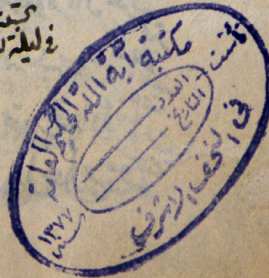 في ليلة
مكتبة آية الله الحكيم العامة
تأسست
العدد
التاريخ
في النجف الاشرف
سنة ١٣٧٧